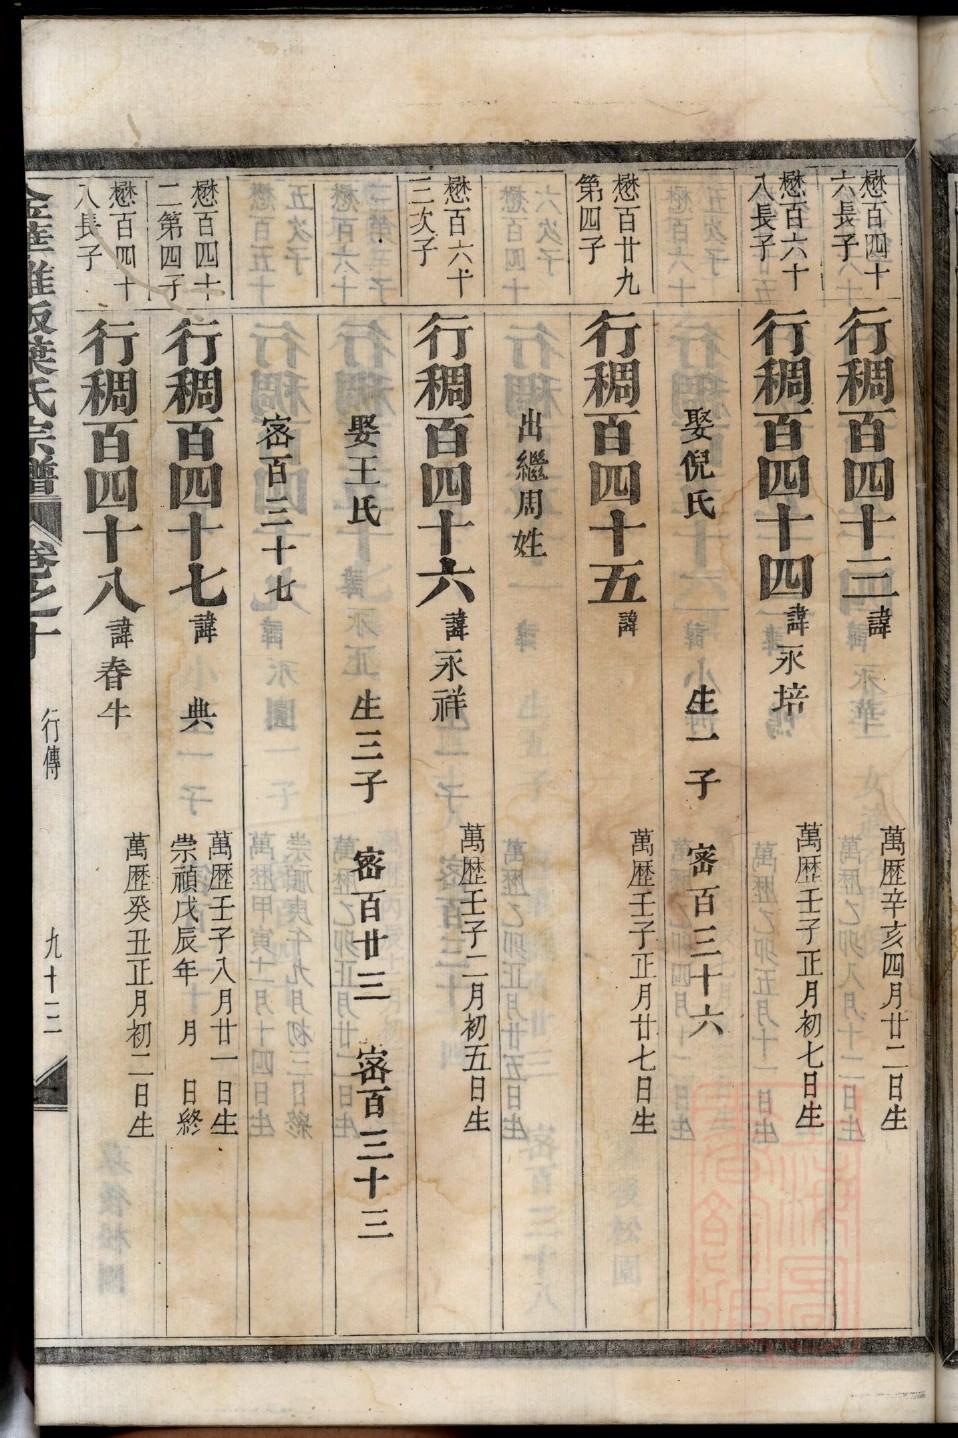 懋百四十
六長子
行稠百四十三諱
萬歷辛亥四月廿二日生
懋百六十
八長子
行稠百四十四諱永培
萬歷壬子正月初七日生
娶倪氏 生一子 密百三十六
懋百廿九
第四子
行稠百四十五諱
萬歷壬子正月廿七日生
出繼周姓
懋百六十
三次子
行稠百四十六諱永祥
萬歷壬子二月初五日生
娶王氏 生三子 密百廿三 密百三十三
密百三十七
懋百四十
二第四子
行稠百四十七諱 典
萬歷壬子八月廿一日生
崇禎戊辰年 月 日終
懋百四十
八長子
行稠百四十八諱春牛
萬歷癸丑正月初二日生
葉氏宗譜 卷之十 行傳 九十三